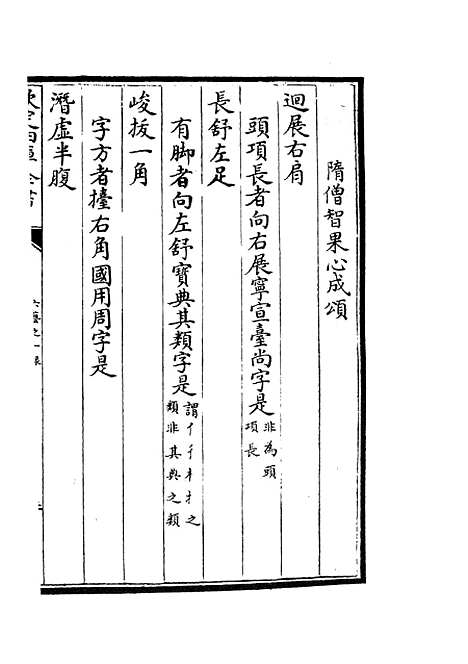 隋僧智果心成頌
迴展右肩
頭項長者向右展寧宣臺尚字是非為頭項長
長舒左足
有脚者向左舒寶典其類字是謂亻彳木扌之類非其典之類
峻拔一角
字方者擡右角國用周字是
潛虛半腹
六藝之一錄